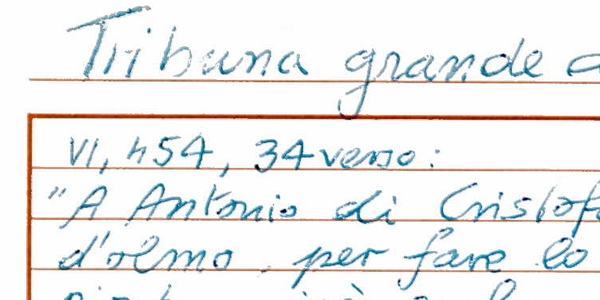 Tribuna grande
VI, 454, 34 verso:
"A Antonio di Cristof
d'olmo, per fare lo